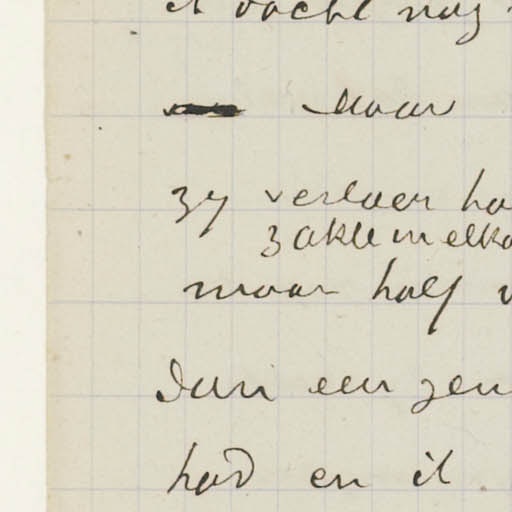 ik dacht nog
maar
zy verloor
zakte in elka
maar half
Dan een zen
had en ik